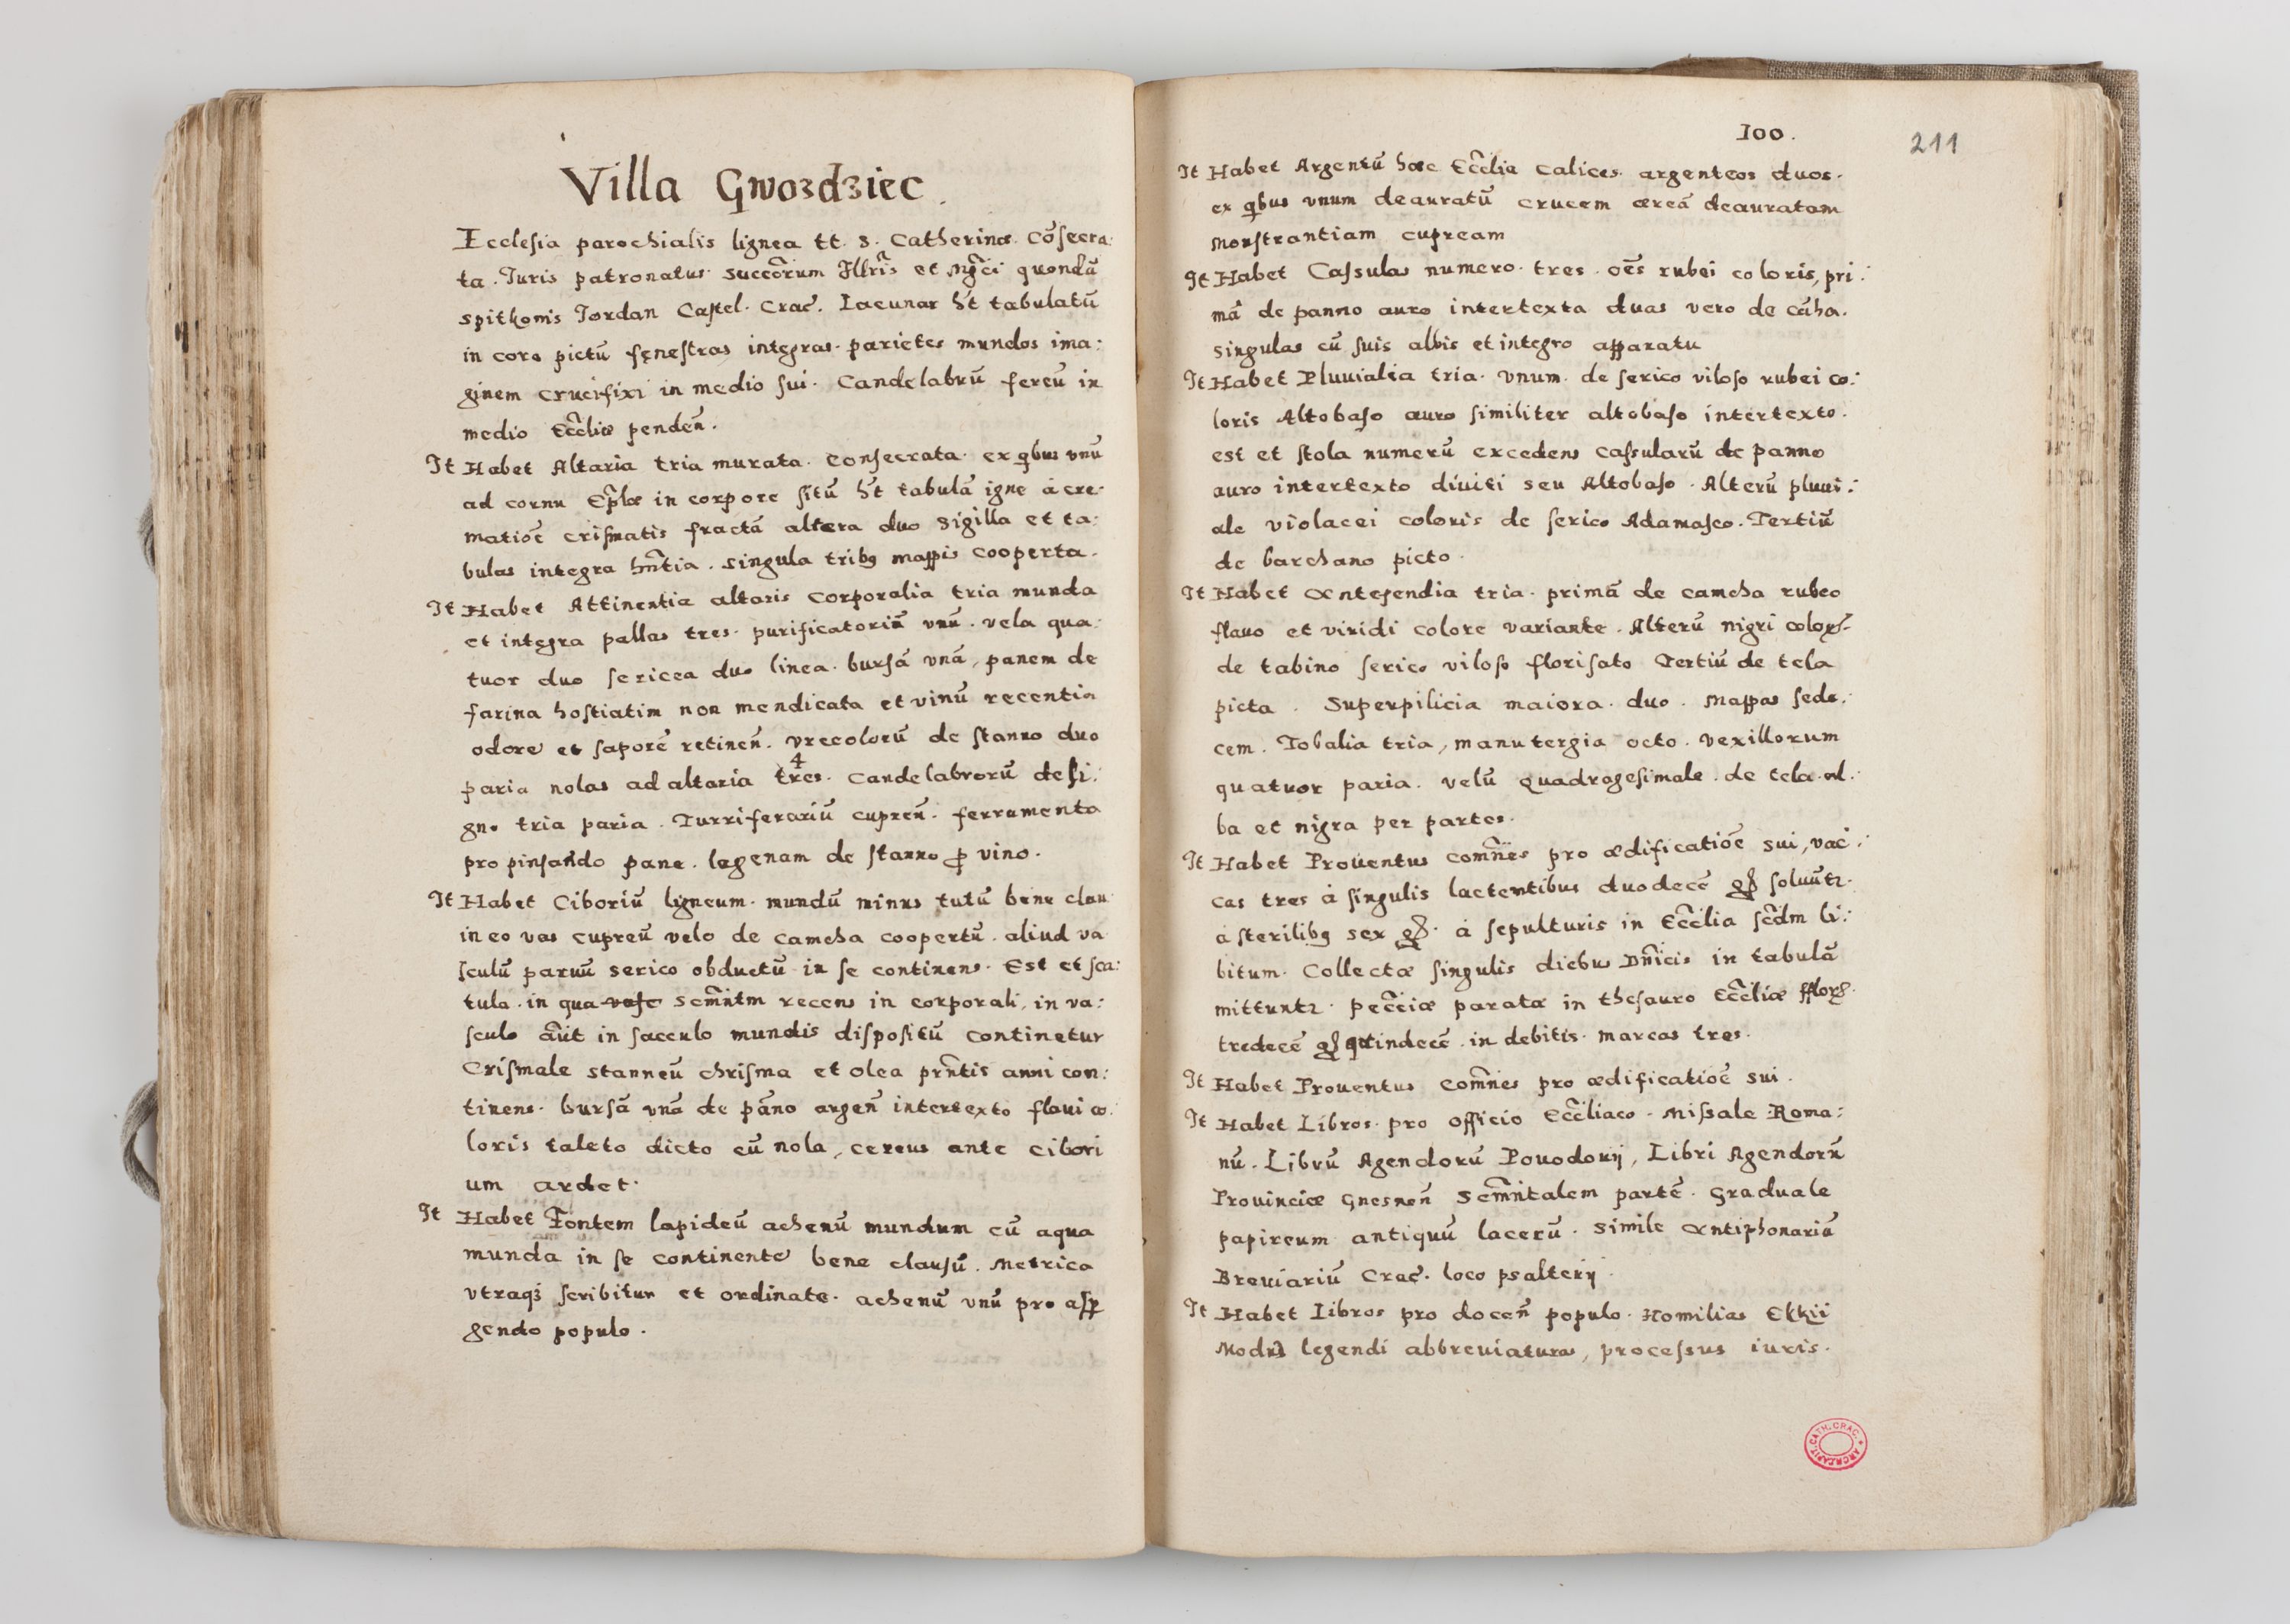 Villa Gwozdziec.
Ecclesia parochialis lignea tt. S. Catherinæ. Cõsecra:
ta. Iuris patronatus. succõrum Illris̃ et Mgc̃i quondũ
Spitkonis Jordan Castel. Crac̃. Lacunar h̃t tabulatũ
in coro pictũ fęnestras integras. parietes mundos ima:
ginem crucifixi in medio sui. Candelabrũ ferẽũ in
medio Ecc̃liæ pendeñ.
It Habet Altaria tria murata. consecrata. ex qbus vnũ
ad cornu Ep̃læ in corpore sitũ h̃t tabulã igne à cre:
matiõe crismatis fractã altera duo sigilla et ta:
bulas integra hñtia. singula tribꝰ mappis cooperta.
It Habet Attinentia altaris corporalia tria munda
et integra pallas tres. purificatoriũ vnũ. vela qua:
tuor duo sericea duo linea. bursã vnã, panem de
farina hostiatim non mendicata et vinũ recentia
odore et saporẽ retineñ. vrecolorũ de stanno duo
paria nolas ad altaria tres. 4 candelabrorũ de li:
gno tria paria. Turriferariũ cupreũ. ferramenta
pro pinsando pane. lagenam de stanno ꝓ vino.
It Habet Ciboriũ ligneum. mundũ minus tutũ bene clau
in eo vas cupreũ velo de camcha coopertũ. aliud va
sculũ paruũ serico obductũ in se continens. Est et sca:
tula. in qua vase Scm̃ntm recens in corporali, in va:
sculo aũt in sacculo mundis dispositũ continetur
Crismale stanneũ chrisma et olea prñtis anni con:
tinens. bursã vnã de pãno argeñ intertexto flaui co:
loris taleto dicto cũ nola, cereus ante cibori
um ardet.
It Habet Fontem lapideũ achenũ mundum cũ aqua
munda in se continente bene clausũ. Metrica
vtraqꝫ scribitur et ordinate. achenũ vnũ pro asꝑ
gendo populo.
100.
211
It Habet Argentũ hæc Ecc̃lia calices argenteos duos.
ex qbus vnum deauratũ crucem æreã deauratam
Monstrantiam cupream
It Habet Cassulas numero tres. oẽs rubei coloris, pri:
mã de panno auro intertexta duas vero de cãha.
singulas cũ suis albis et integro apparatu
It Habet Pluuialia tria. vnum. de serico viloso rubei co:
loris Altobaso auro similiter altobaso intertexto.
est et stola numerũ excedens cassularũ de panno
auro intertexto diuiti seu Altobaso. Alterũ pluui:
ale violacei coloris de serico Adamasco. Tertiũ
de barchano picto.
It Habet Antependia tria. primã de camcha rubeo
flauo et viridi colore variante. Alterũ nigri coloꝝ
de tabino serico viloso florisato Tertiũ de tela
picta. Superpilicia maiora. duo. Mappas sede:
cem. Tobalia tria, manutergia octo. vexillorum
quatuor paria. velũ quadragesimale. de tela al:
ba et nigra per partes.
It Habet Prouentus com̃nes pro ædificatiõe sui, vac:
cas tres à singulis lactentibus duodecẽ gſ soluũtꝛ.
à sterilibꝰ sex gſ. à sepulturis in Ecc̃lia scd̃m li:
bitum. Collectæ singulis diebus Dñicis in tabulã
mittuntꝛ. pecc̃iæ paratæ in thesauro Ecc̃liæ fflorꝝ.
tredecẽ gſ quindecẽ. in debitis. marcas tres.
It Habet Prouentus com̃nes pro ædificatiõe sui.
It Habet Libros. pro officio Ecc̃liaco. Missale Roma:
nũ. Librũ Agendorũ Pouodouij, Libri Agendorũ
Prouinciæ Gnesneñ Scm̃ntalem partẽ. Graduale
papireum antiquũ lacerũ. simile Antiphonariũ
Breuiariũ Crac̃. loco psalterij.
It Habet Libros pro doceñ populo. Homilias Ekkii
Modũ legendi abbreuiaturas, processus iuris.